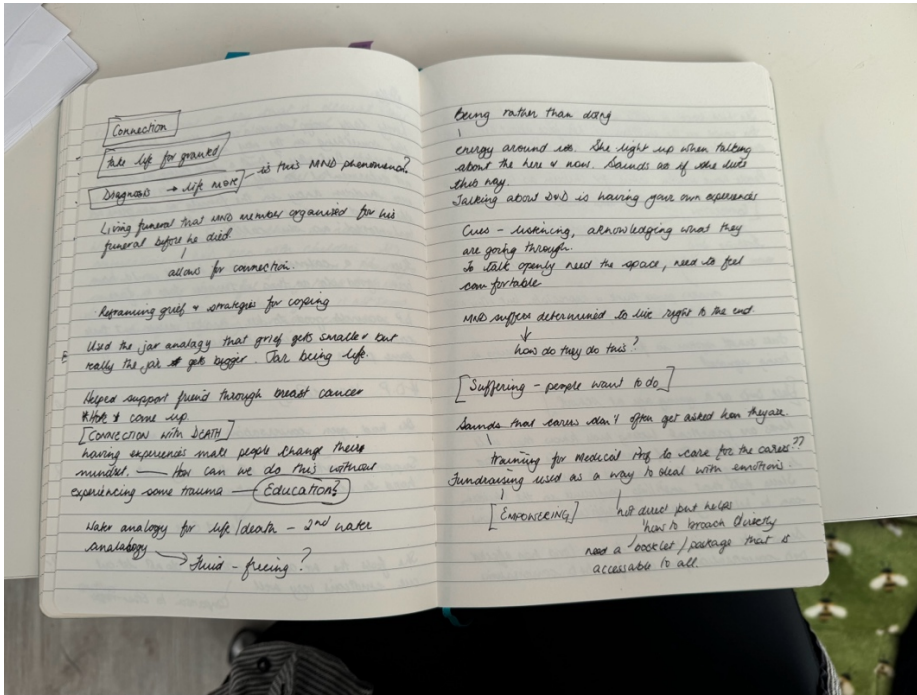 Connection
Take life for granted
Diagnosis → life more — is this MND phenomena?
Living funeral that MND member organised for his
funeral before he died
allows for connection.
Reframing grief & strategies for coping
Used the jar analagy that grief gets smaller but
really the jar gets bigger. Jar being life.
Helped support friend through breast cancer
come up
[CONNECTION WITH DEATH]
having experiences make people change there
mindset. — How can we do this without
experiencing some trauma — Education?
Water analogy for life/death – 2nd water
analabogy → Fluid – freeing?
Being rather than doing
energy around us. She light up when talking
about the here & now. Sounds as if she lives
this way.
Talking about D&D is having your own experiences
Cues – listening, acknowledging what they
are going through.
To talk openly need the space, need to feel
comfortable
MND suffers determined to live right to the end.
↓
how do they do this?
[Suffering – people want to do]
Sounds that carers don't often get asked how they are.
training for Medical Prof to care for the carers??
Fundraising used as a way to deal with emotions.
[EMPOWERING]
not direct but helps
how to broach directly
need a booklet/package that is
accessable to all.